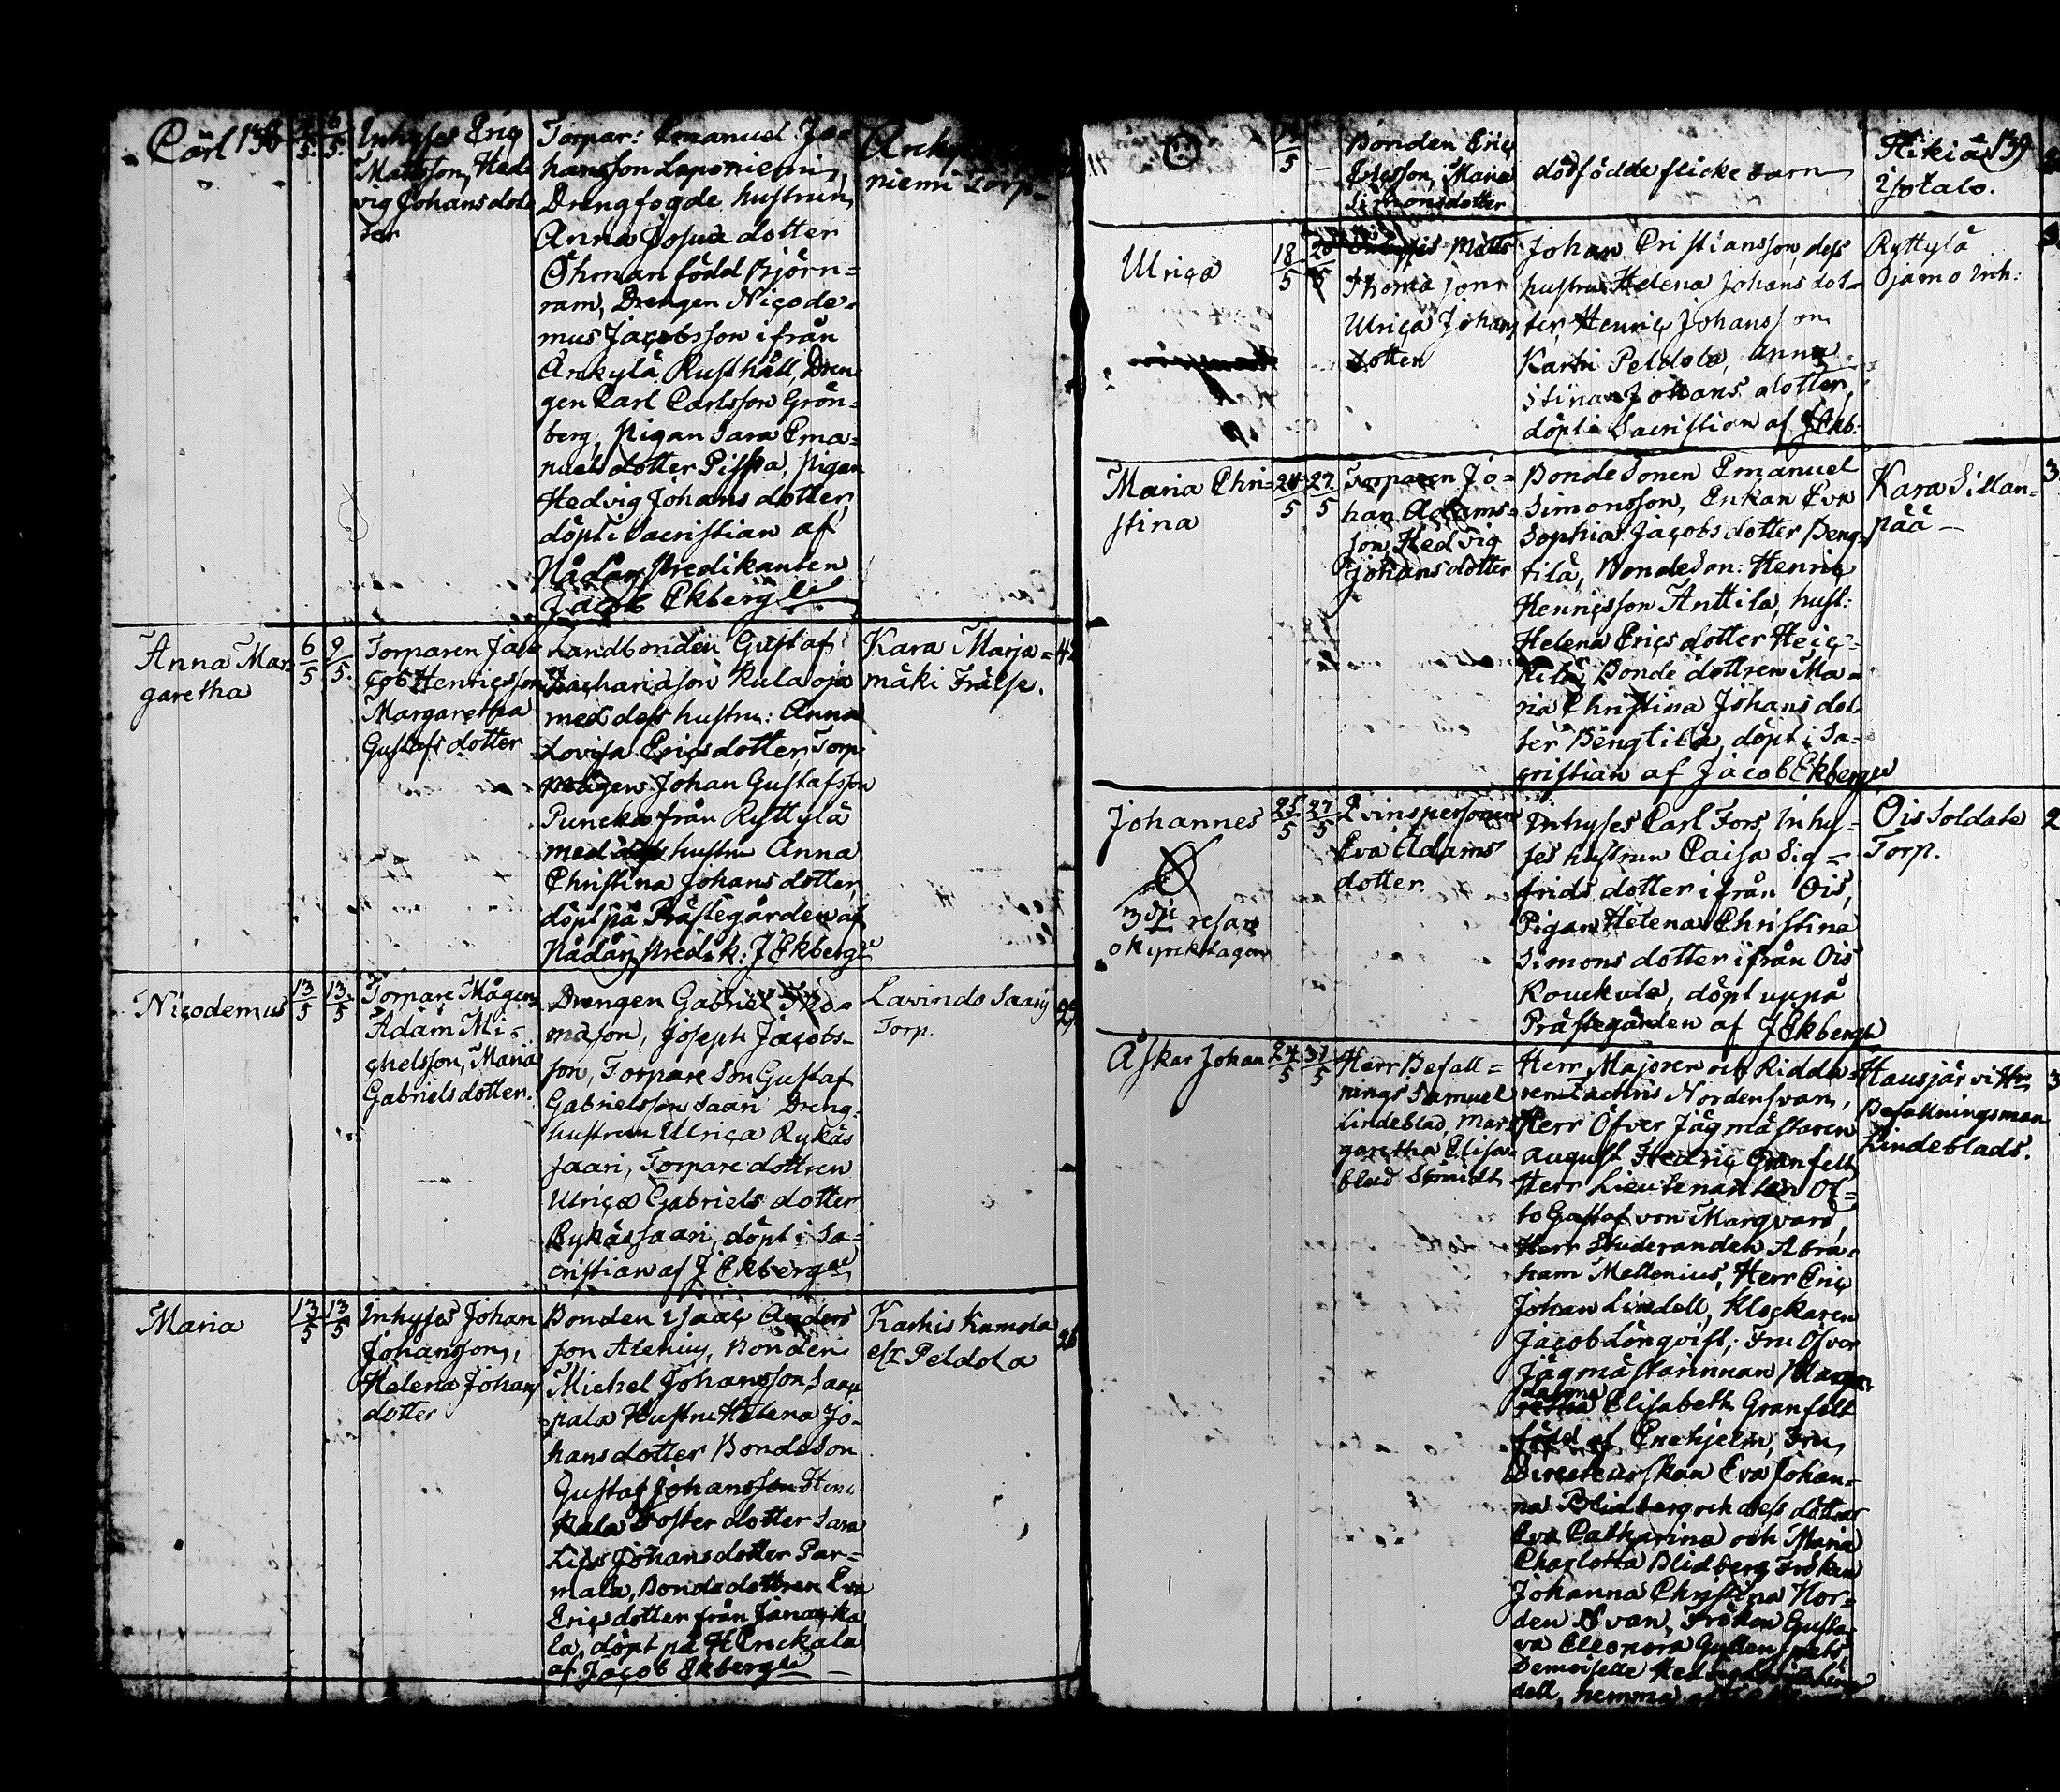 Carl 138
5 6
5. 5.
Inhyses Eriq
Matsson, Hed-
vig Johansdot-
ter
Torpar: Emanuel Jo-
hansson Leponiemi,
Drengfogde hustrun
Anna Josua dotter
Öhman född Björn=
ram, Drengen Niçode-
mus Jaçobsson ifrån
Arekylä Rusthåll, Dren-
gen Carl Carlsson Grön-
berg, Pigan Sara Ema-
nuels dotter Pissa, Pigan
Hedvig Johans dotter,
döpt i Sacristian af
Nådår Predikanten
Jacob Ekberg
niemi Torp
Anna Mar-
garetha
6 9
5 5.
Torparen Ja-
çob Henriçsson
Margaretha
Gustafs dotter
Landbonden Gustaf
Zachariasson Kulaoja
med dess hustru: Anna
Lovisa Eriçsdotter, Torp-
mågen Johan Gustafsson
Puncka från Ryttylä
med dess hustru Anna
Christina Johans dotter,
döpt på Prästegården af
Nådår Predik: J Ekberg
Kara Marja=
mäki Frälse.
Niçodemus
13 13
5 5
Torpare Mågen
Adam Mi-
çhelsson, Maria
Gabriels dotter.
Drengen Gabriel Tho-
masson, Joseph Jaçobs-
son, Torpare Son Gustaf
Gabrielsson Saari Dreng-
hustrun Ulriça Rykäs
saari, Torpare dottren
Ulriça Gabriels dotter
Rykässaari, döpt i Sa-
cristian af J Ekberg
Lavindo Saari
Torp.
Maria
13 13
5 5
Inhyses Johan
Johansson,
Helena Johans
dotter
Bonden Isaaç Anders
son Alehiuy, Bonden
Michel Johansson Saaç
pala Hustru Helena Jo-
hans dotter Bondeson
Gustaf Johansson Hinc
kala Foster dotter Sara
Lisa Johansdotter Par=
mala, Bondedottren Eva
Eriçsdotter från Janacka
la, döpt på H Enckala
af Jaçob Ekberg
Karhis Kamola
Peldola
5 –
Bonden Eriç
Ericsson, Maria
Simonsdotter
dödfödde flicke barn
Hikiä 139
Istalo.
Ulriça
18 20
5 5
Inhyses Matts
Thoma son
Ulriça Johans
dotter
Johan Cristiansson, dess
hustru Helena Johans dot-
ter, Henriç Johansson
Karhi Peldola, Anna
Stina Johans dotter,
döpt i Sacristian af J Ekb:
Ryttylä
Ojamo Inh:
Maria Chri-
stina
24 27
5 5
Torparen Jo-
han Adams-
son, Hedvig
Johans dotter
Bonde Sonen Emanuel
Simonsson, Enkan Eva
Sophia Jaçobs dotter Beng-
tilä, Bondeson: Henriç
Henriçsson Anttila, hust:
Helena Eriçs dotter Heiç-
kilä, Bonde dottren Ma-
ria Christina Johans dot-
ter Bengtilä, döpt i Sa-
çristian af Jacob Ekberg
Kara Sillan=
pää –
Johannes
25 27
5 5
3dje resan
okyrcktagen
Qvinspersonen
Eva Adams
dotter.
Inhyses Carl Fors, Inhy-
ses hustrun Caisa Sig=
frids dotter ifrån Ois,
Pigan Helena Christina
Simons dotter ifrån Ois
Kouckula, döpt uppå
Prästegården af J Ekberg
Ois Soldate
Torp.
Askar Johan
24 31
5 5
Herr Befall=
nings Samuel
Lindeblad, Mar-
garetha Elisa-
blad Smidt
Herr Majoren och Ridda-
ren Zachris Nordensvan,
Herr Öfver Jägmästaren
August Fredriç Granfelt,
Herr Lieutenanten Ot=
to Gustaf von Marqvard,
Herr Studeranden Abra-
ham Mellenius, Herr Eriç
Johan Lindell, Klockaren
Jaçob Lönqvist, Fru Öfver
Jägmästarinnan
Elisabeth Granfelt
född af Enehjelm, Fru
Directeurskan Eva Johan-
na Blidberg och dess döttrar
Eva Catharina och Maria
Charlotta Blidberg, Fröken
Johanna Christina Nor-
den Svan, Fröken Gusta-
va Eleonora Gyllenspets
Demoiselle Hedvig
dell, hemma
Hausjärvi Hr
Befallningsman
Lindeblads.